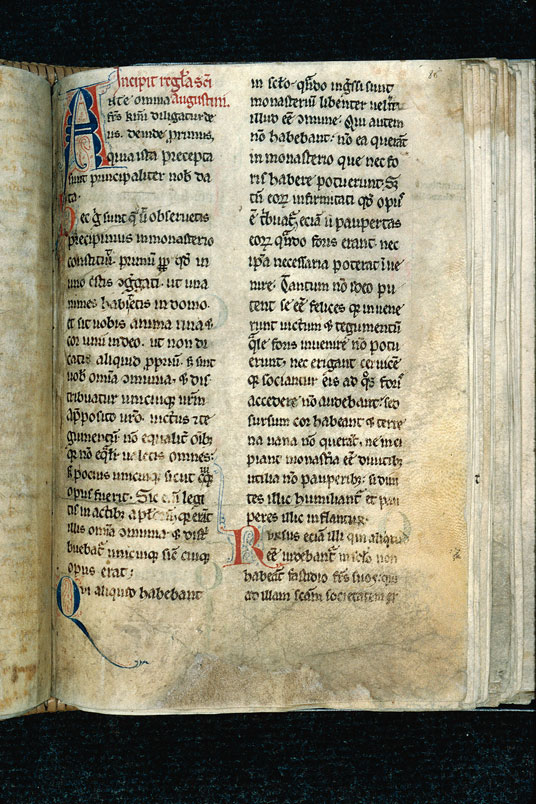 Incipit regła sci
Ante omnia Augustini.
frs krmi diligatur de
us. deinde proximus,
quia ista precepta
sunt principaliter nob da
ta.
Hec g sunt que ut observetis
precipimus in monasterio
constituti. primum propter qd in
uno estis ɔgregati. ut una
nimes habitetis in domo.
et sit vobis anima una et
cor unum in deo. ut non di
catis aliquid proprium. sed sint
vob omia omnia. et dis
tribuatur unicuique vrm
a pposito vro. victus et te
gumentum no equalit oib;
quia no equalr valetis omnes:
sed pocius unicuique sicut cuique
opus fuerit. Sic enim legi
tis in actib; aplorum. quia erant
illis omia omnia. et distri
buebatur unicuique sicut cuique
opus erat:
Qui aliquid habebant
in sclo. quando ingressi sunt
monasterium libenter velint
illud ee omune. Qui autem
no habebant: no ea querant
in monasterio que nec fo
ris habere potuerunt. Si
tamen eorum infirmitati qd opus
e tribuatur. eciam si paupertas
eorum quando foris erant. nec
ipsa necessaria poterat inve
nire. Tantum no ideo pu
tent se ee felices quia invene
runt victum et tegumentum
quale foris invenire no potu
erunt, nec erigant cervicem
quia sociantur eis ad quos foris
accedere no audebant: sed
sursum cor habeant et terre
na vana no querant, ne inci
piant monasteria ee divitib;
utilia no pauperib;. si divi
tes illic humiliantur et pau
peres illic inflantur.
Rursus eciam illi qui aliquid
ee videbantur in sclo non
habeant fastidio frs suos. qui
ad illam scam societatem ex